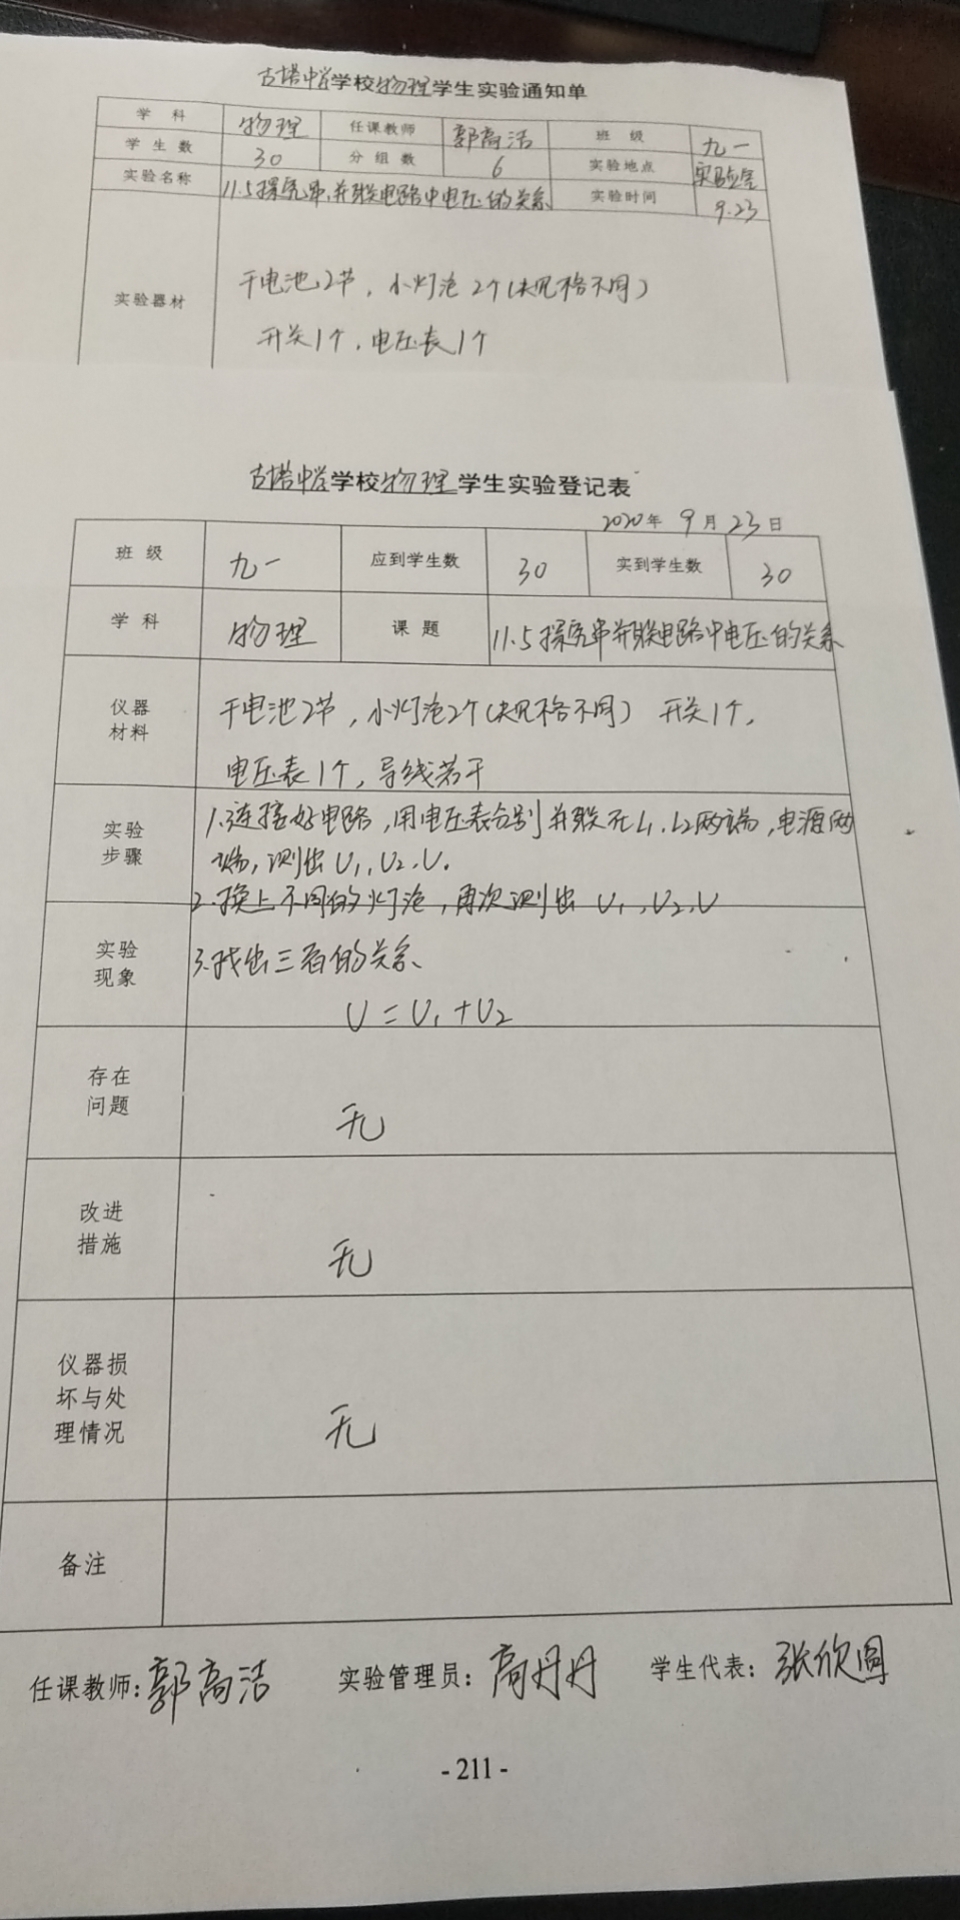 古塔中学学校物理学生实验通知单
学 科 物理 任课教师 郭高洁 班 级 九一
学 生 数 30 分 组 数 6 实验地点 实验室
实验名称 11.5探究串并联电路中电压的关系 实验时间 9.23
实验器材 干电池2节，小灯泡2个(规格不同)
开关1个，电压表1个
古塔中学学校物理学生实验登记表
2020年 9月23日
班 级 九一 应到学生数 30 实到学生数 30
学 科 物理 课 题 11.5探究串并联电路中电压的关系
仪器 干电池2节，小灯泡2个(规格不同) 开关1个，
材料 电压表1个，导线若干
实验 1.连接好电路，用电压表分别并联在L1、L2两端，电源两
步骤 端，测出U1，U2、U。
2.换上不同的灯泡，再次测出 U1，U2、U
实验 3.找出三者的关系、
现象 U=U1+U2
存在
问题 无
改进
措施 无
仪器损
坏与处 无
理情况
备注
任课教师:郭高洁 实验管理员:高丹丹 学生代表:张欣圆
-211-